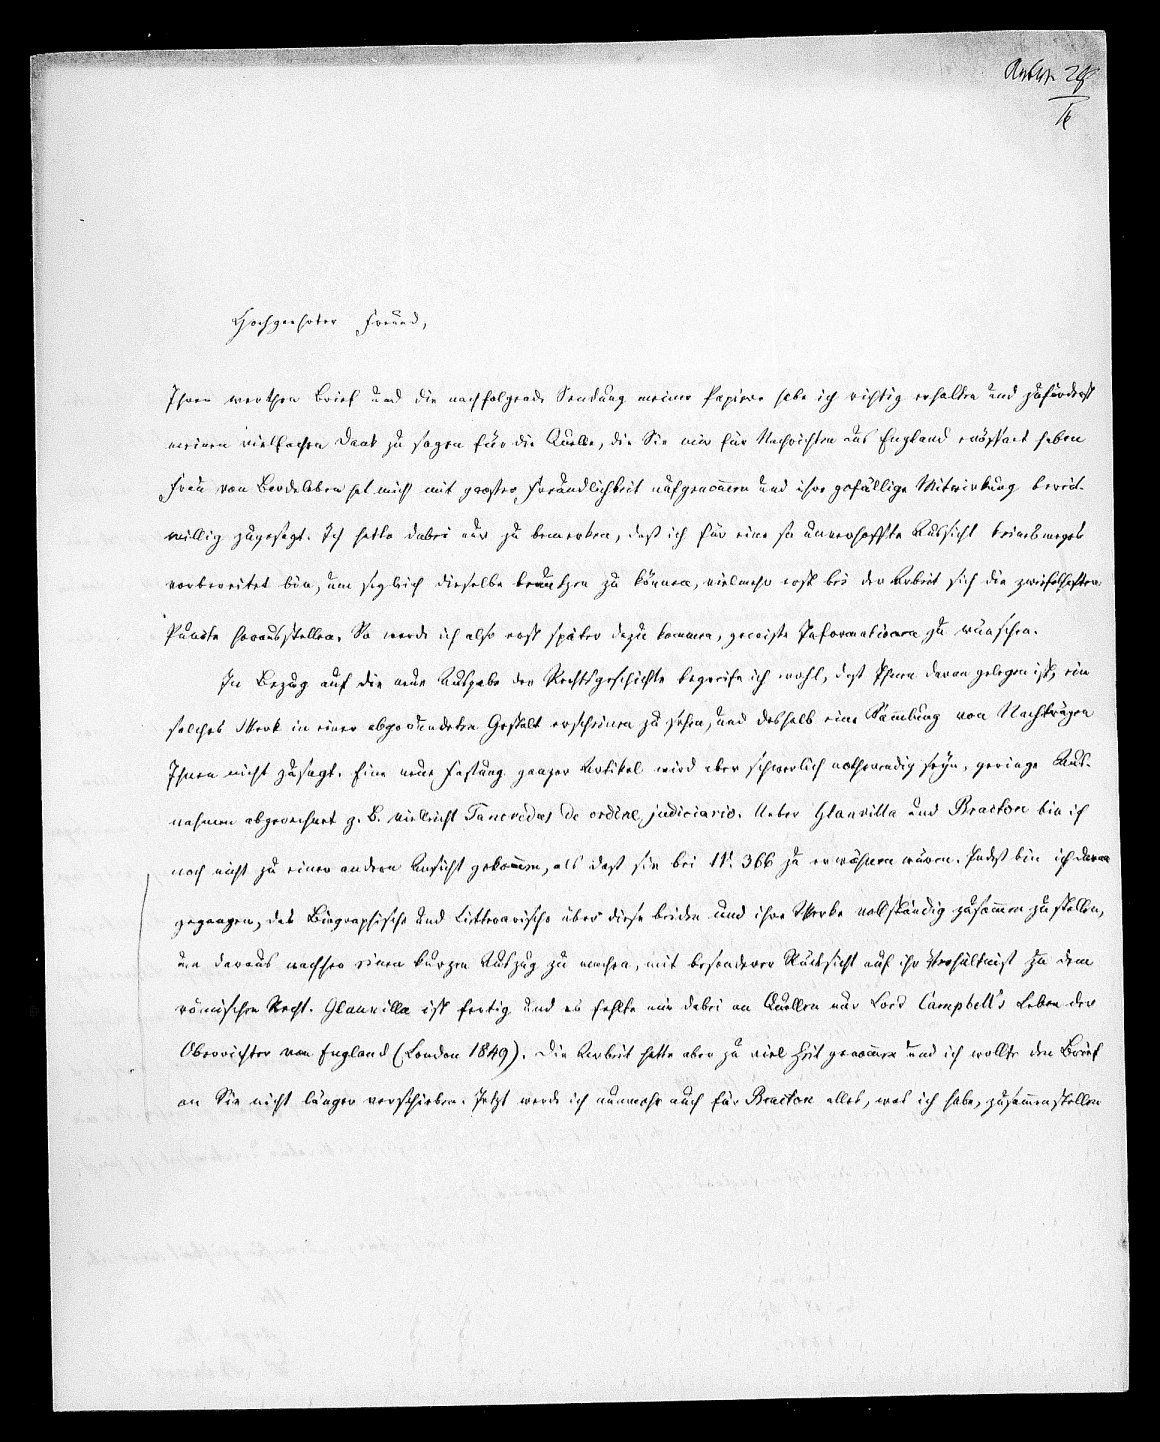 Antw. 28
Hochgeehrter Freund,
Ihren werthen Brief und die nachfolgende Sendung meiner Papiere habe ich richtig erhalten und zuförderst
meinen vielfachen Dank zu sagen für die Quelle, die Sie mir für Nachrichten aus England eröffnet haben
Frau von Bardeleben hat mich mit großer Freundlichkeit aufgenommen und ihre gefällige Mitwirkung bereit-
willig zugesagt. Ich hatte dabei nur zu bemerken, daß ich für eine so unverhoffte Aussicht keineswegs
vorbereitet bin, um sogleich dieselbe benutzen zu können, vielmehr erst bei der Arbeit sich die zweifelhaften
Puncte herausstellen. So werde ich also erst später dazu kommen, gewisse Informationen zu wünschen.
In Bezug auf die neue Ausgabe der Rechtsgeschichte begreife ich wohl, daß Ihnen daran gelegen ist, ein
solches Werk in einer abgerundeten Gestalt erscheinen zu sehen, und deshalb eine Sammlung von Nachträgen
Ihnen nicht zusagt. Eine neue Fassung ganzer Artikel wird aber schwerlich nothwendig seyn, geringe Aus-
nahmen abgerechnet z. B. vielleicht Tancredus de ordine judiciario. Ueber Glanvilla und Bracton bin ich
noch nicht zu einer andern Ansicht gekommen, als daß sie bei N. 366 zu erwähnen wären. Indeß bin ich daran
gegangen, das Biographische und Litterarische über diese beiden und ihre Werke vollständig zusammen zu stellen,
um daraus nachher einen kurzen Auszug zu machen, mit besonderer Rücksicht auf ihr Verhältniß zu dem
römischen Recht. Glanvilla ist fertig und es fehlte mir dabei an Quellen nur Lord Campbell's Leben der
Oberrichter von England (London 1849). Die Arbeit hatte aber zu viel Zeit genommen und ich wollte den Brief
an Sie nicht länger verschieben. Jetzt werde ich nunmehr auch für Bracton alles, was ich habe, zusammenstellen